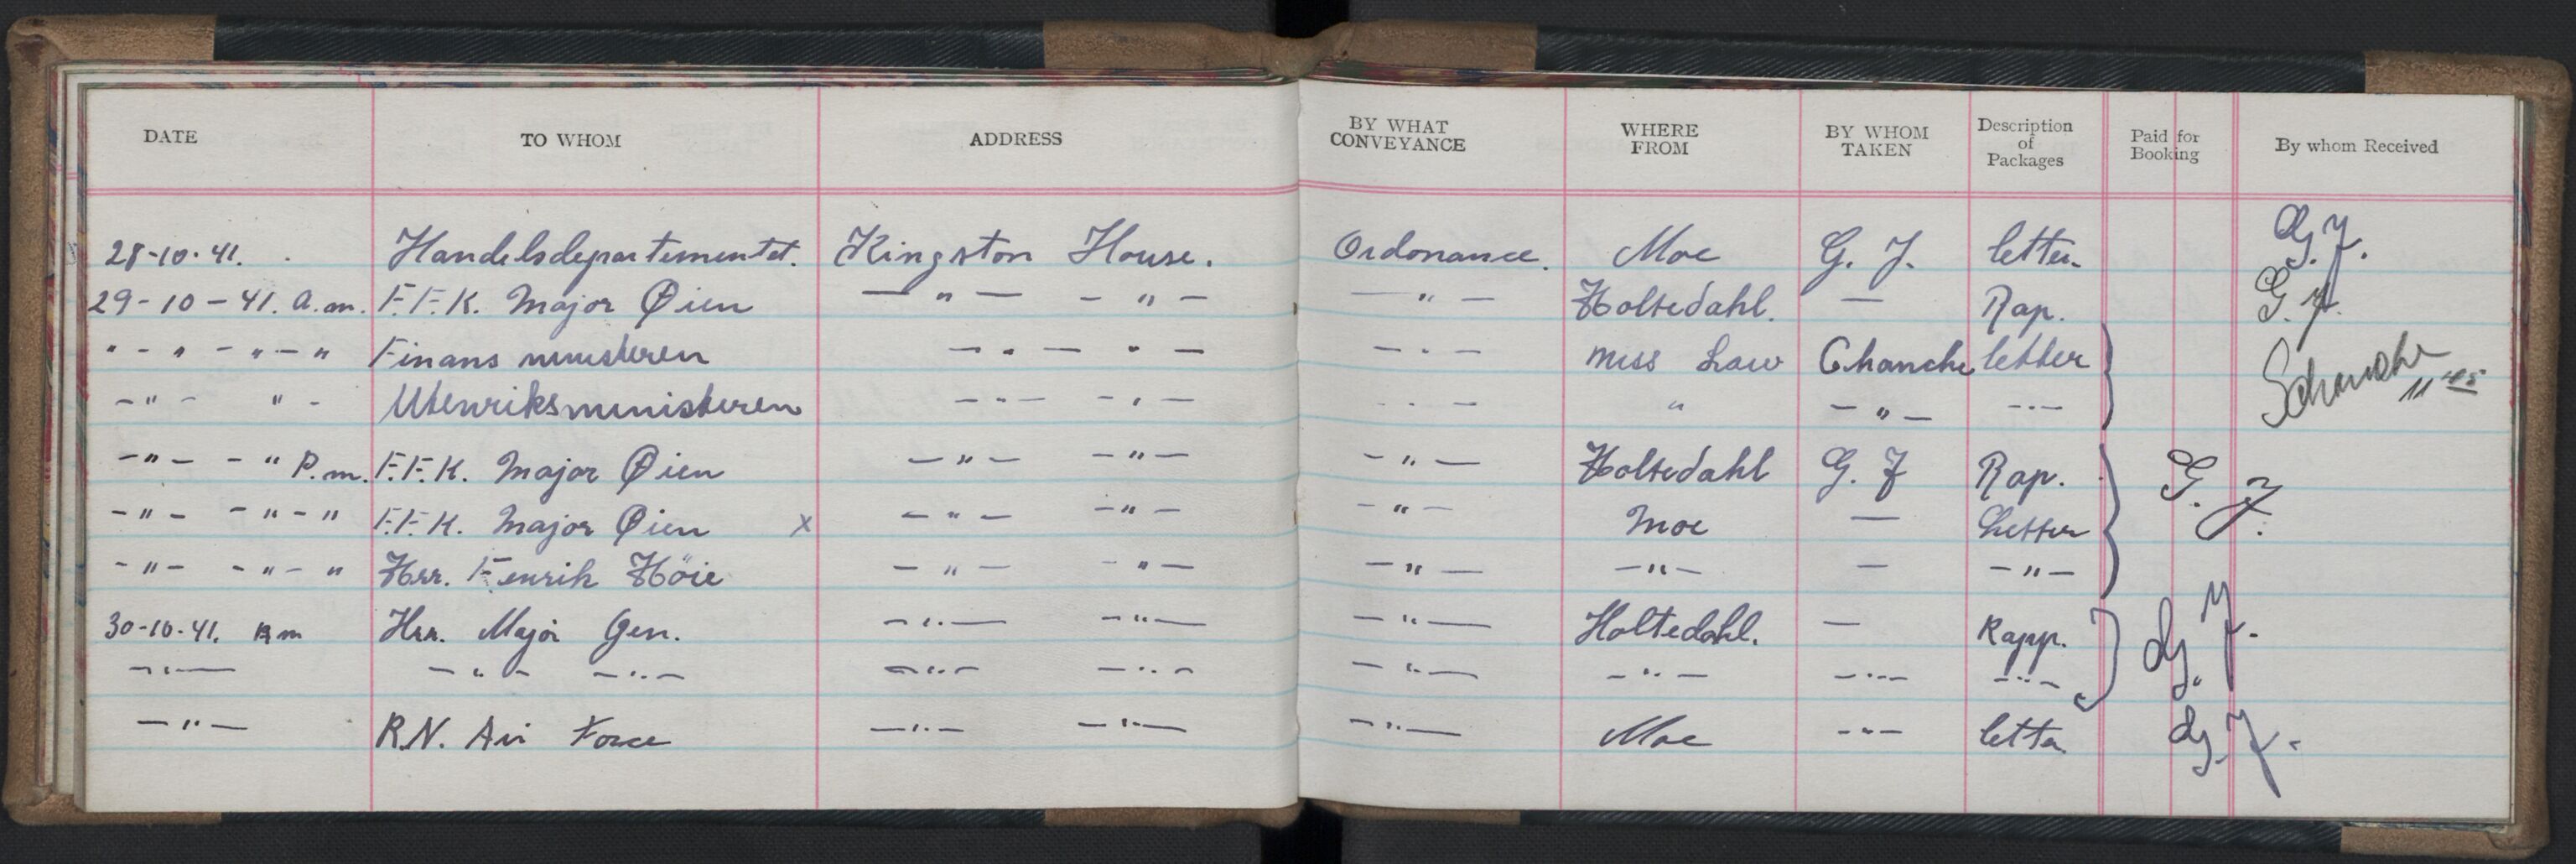 DATE TO WHOM ADDRESS BY WHAT CONVEYANCE WHERE FROM BY WHOM TAKEN Description of Packages Paid for Booking By whom Received
28-10-41. Handelsdepartementet. Kingston House. Ordonance. Moe G. J. letter. G. J.
29-10-41. a.m. F.F.K. Major Øien — " — - " - — " — Holtedahl. — Rap. G. J.
" - " - " - " Finans ministeren — " — " — — " — Miss Law letter
- " - " - Utenriksministeren - " - - " - - " - " - " - - " - 11 45
- " - - " P.m. F.F.K. Major Øien - " - - " - - " - Holtedahl G. J Rap. G. J.
- " - - " - " F.F.K. Major Øien x - " - - " - - " - Moe — Letter
- " - - " - " Hrr. Fenrik Höie - " - - " - - " - - " - — - " -
30-10-41. Hrr. Major Gen. - " - - " - - " - Holtedahl. — Rapp. G. J.
- " - - " - - " - - " - - " - - " - - " - - " - - " -
- " - R.N. Air Force - " - - " - - " - Moe - " - letter G. J.